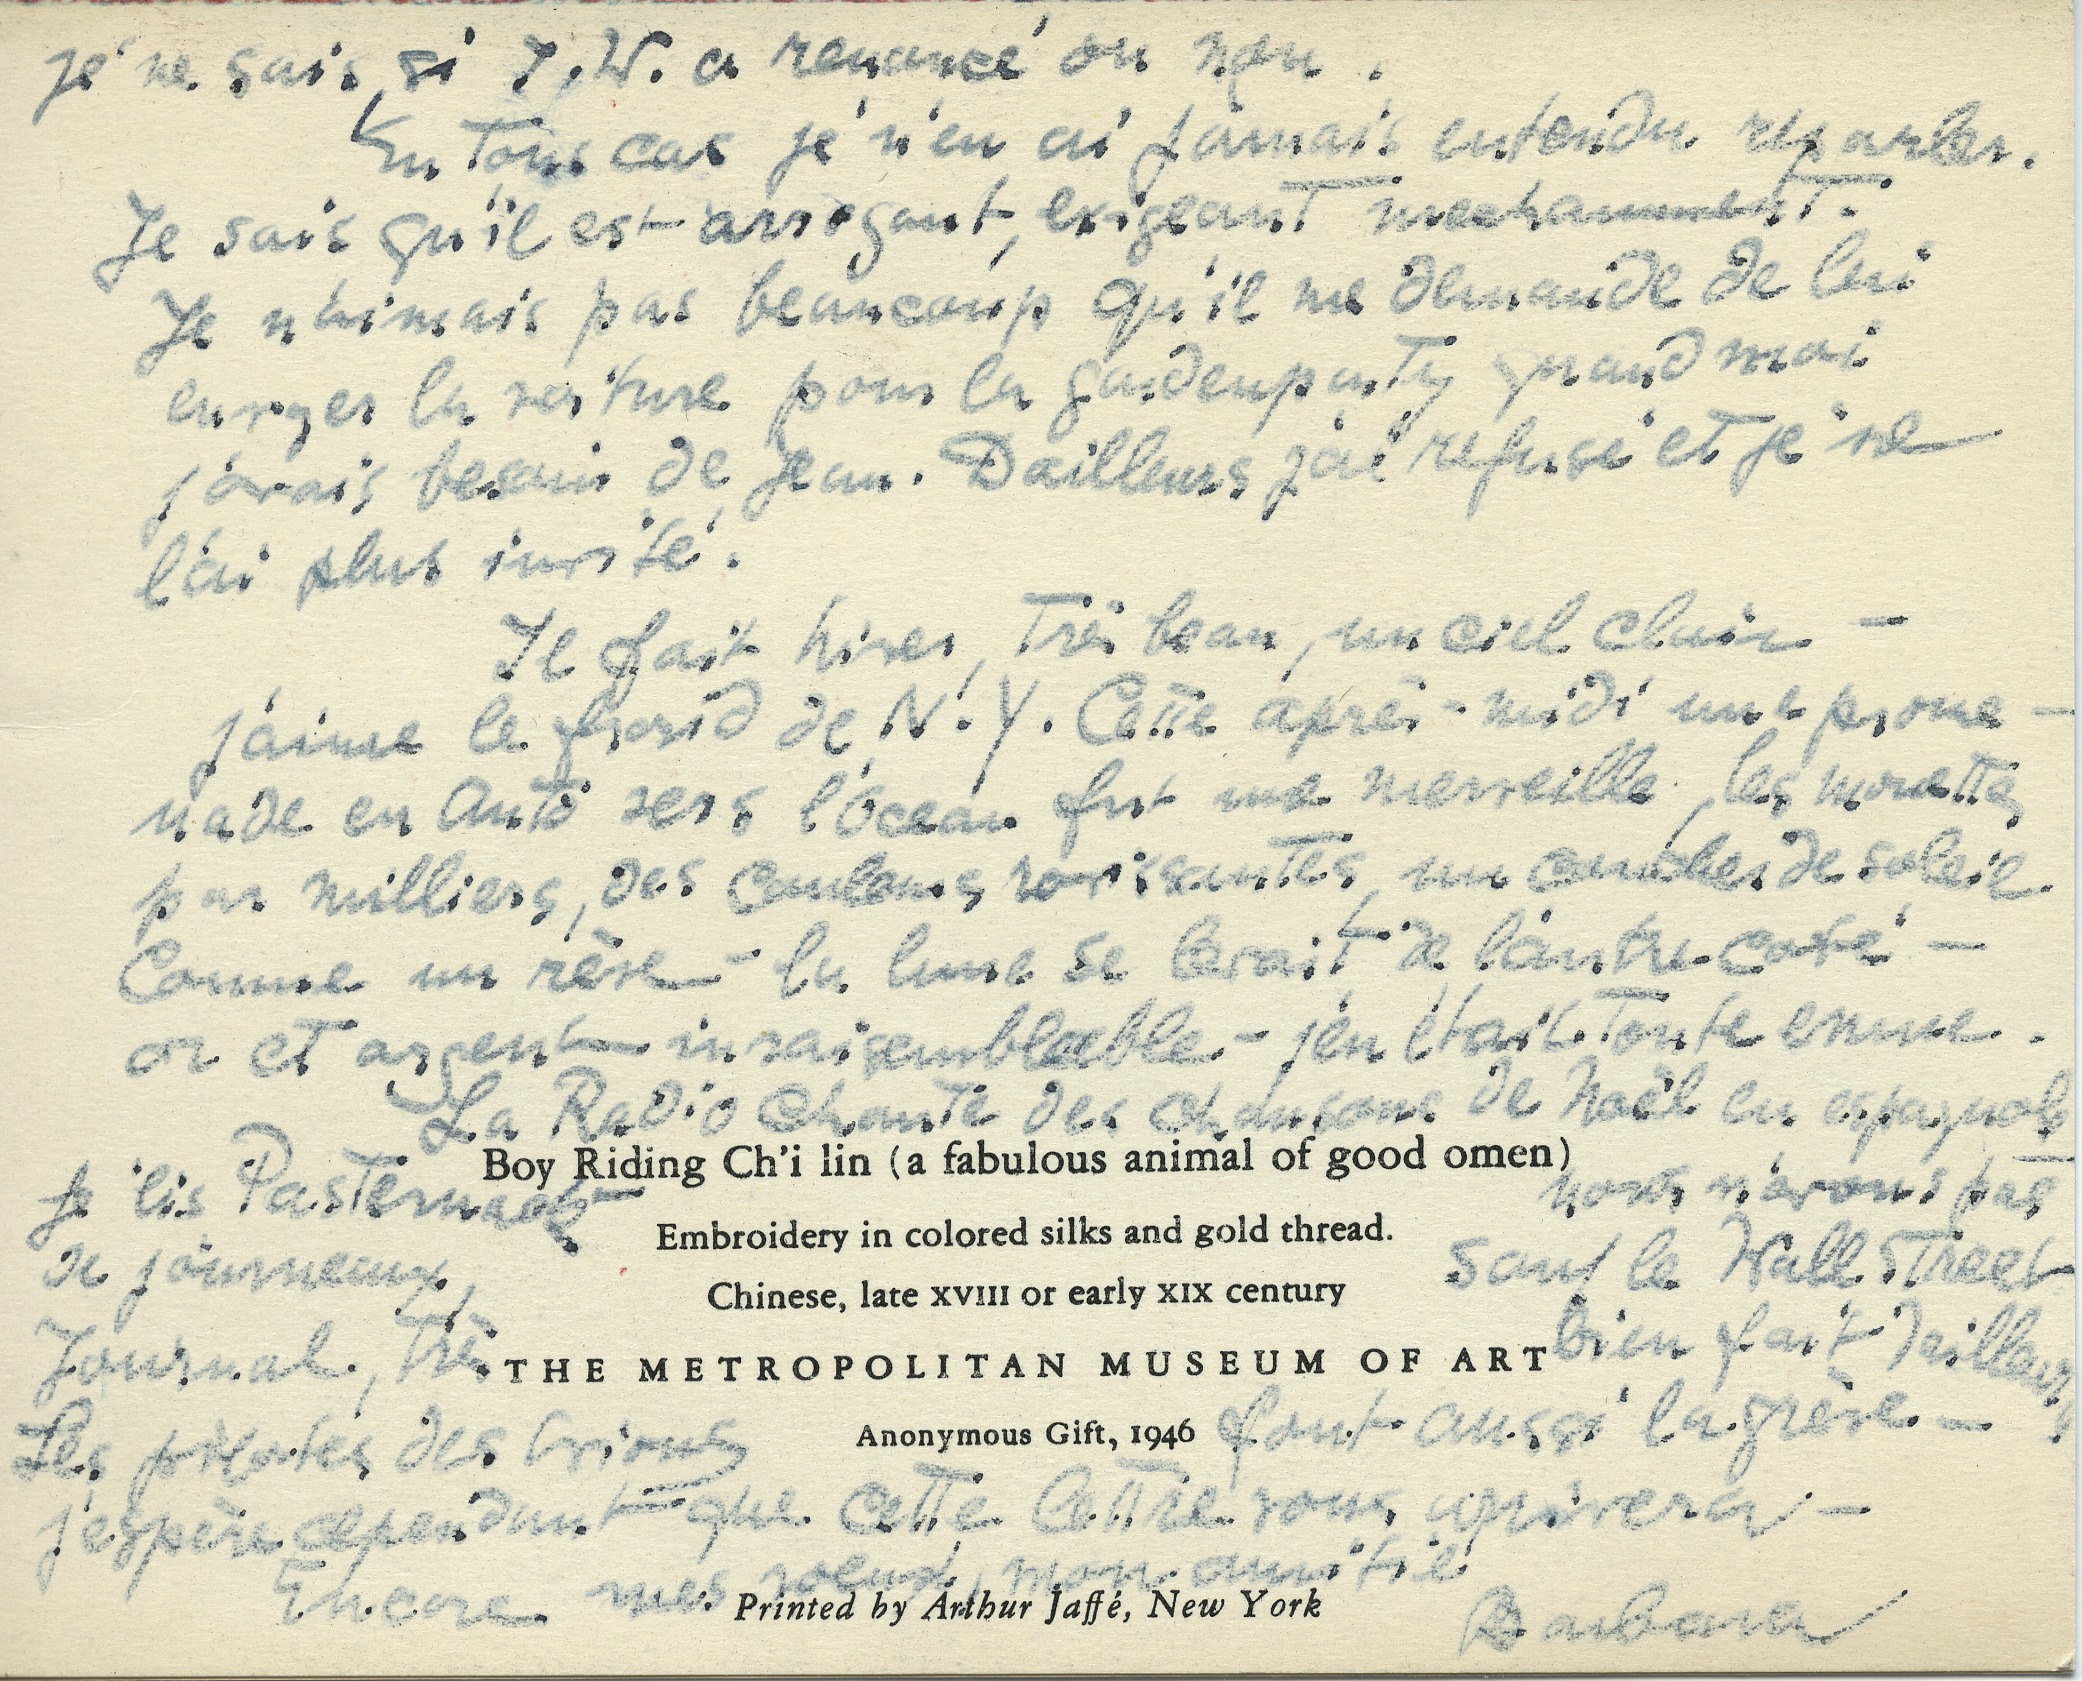 je ne sais si J.W. a renoncé ou non.
En tous cas je n'en ai jamais entendu reparler.
Je sais qu'il est arrogant, exigeant mechamment.
Je n'aimais pas beaucoup qu'il me demande de lui
envoyer la voiture pour la gardenparty quand moi
j'avais besoin de Jean. Dailleurs j'ai refusé et je ne
l'ai plus invité.
Il fait hiver, très beau, un ciel clair –
j'aime le froid de N.Y. Cette après-midi une prome-
nade en Auto vers l'ocean fut une merveille, les mouettes
par milliers, des couleurs ravissantes, un coucher de soleil
Comme un rêve – la lune se levait de l'autre coté –
or et argent invraisemblable – j'en était toute emue.
La Radio chante des chansons de Noël en espagnol
Boy Riding Ch'i lin (a fabulous animal of good omen)
Je lis Pasternack – nous n'avons pas
Embroidery in colored silks and gold thread.
de journeaux, sauf le Wall Street
Chinese, late XVIII or early XIX century
Journal, très bien fait d'ailleurs
THE METROPOLITAN MUSEUM OF ART
Les pilotes des avions font aussi la grève –
Anonymous Gift, 1946
j'espère cependant que cette lettre vous arrivera –
Encore mes voeux, mon amitié
Printed by Arthur Jaffé, New York
Barbara